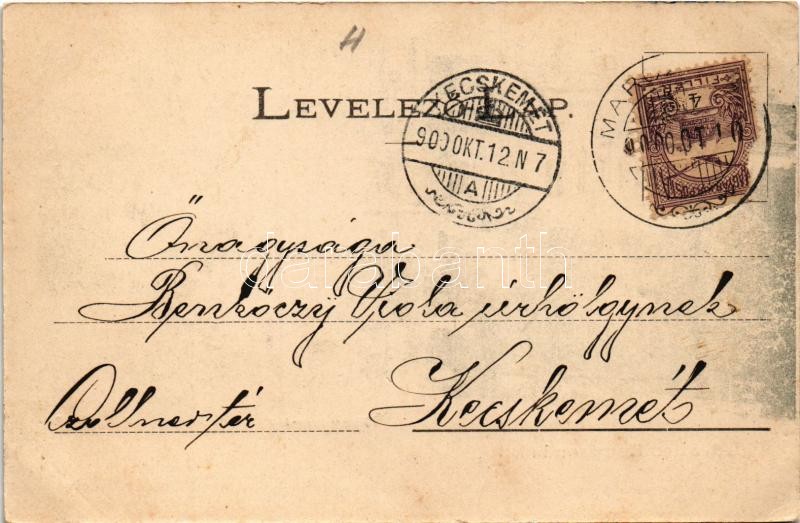 H
LEVELEZŐ LAP.
KECSKEMÉT
900 OKT. 12. N 7
A
4
FILLÉR
Őnagysága
Benkóczy Viola úrhölgynek
Kecskemét
darabanth